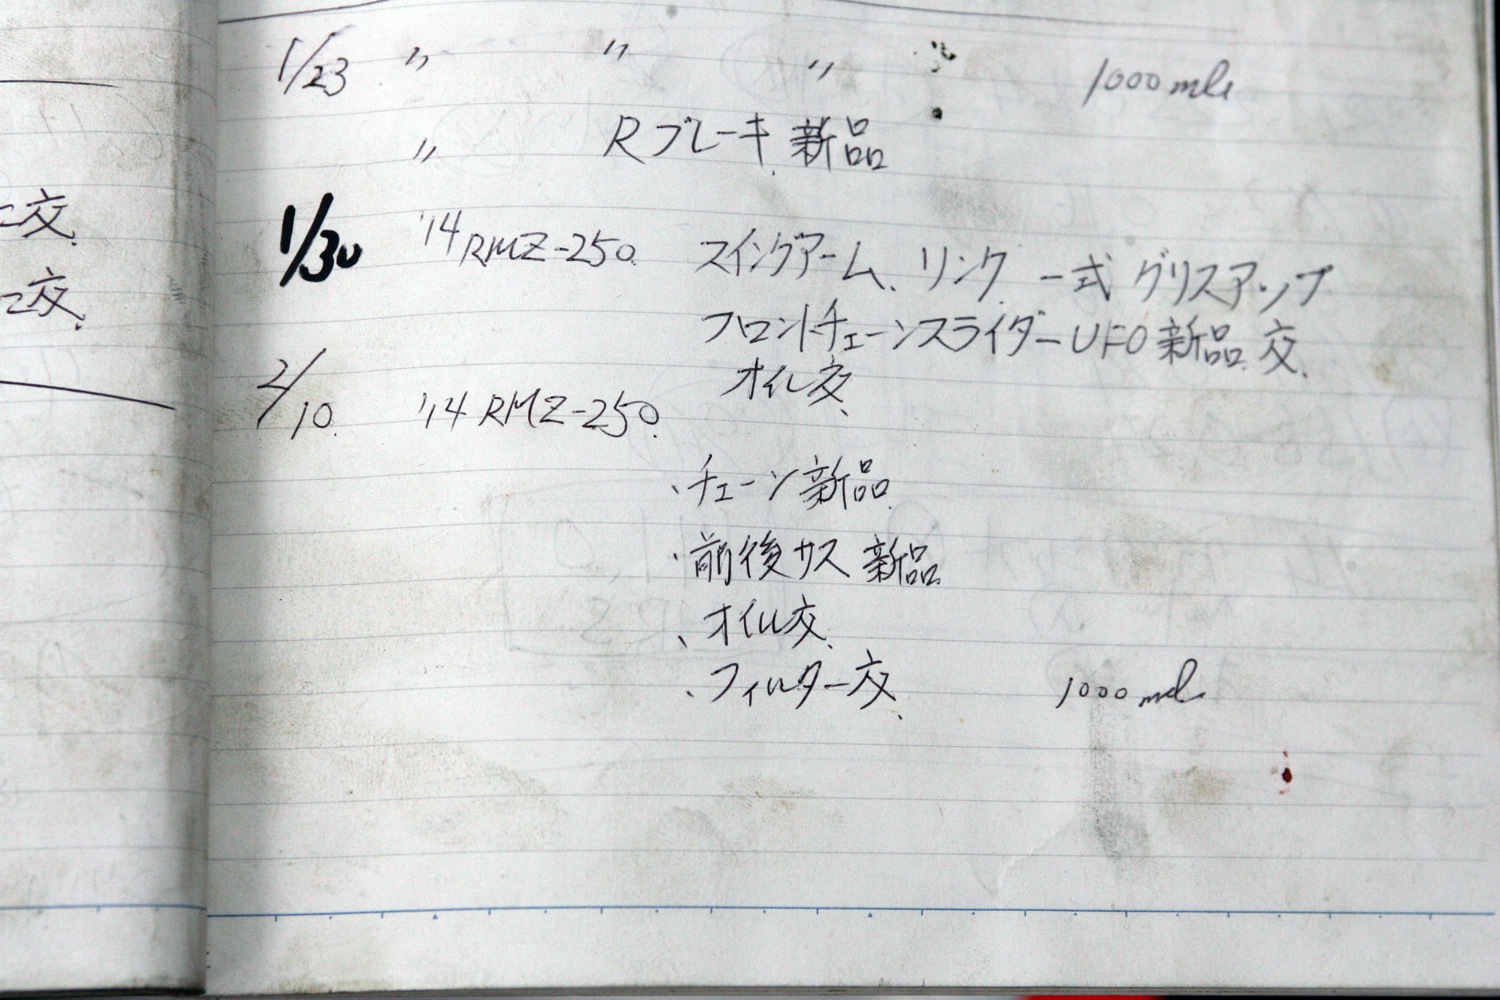 ニ交.
ニ交.
1/23 〃 〃 〃 1000ml
〃 Rブレーキ 新品
1/30 '14 RMZ-250. スイングアーム、リンク 一式 グリスアップ
フロントチェーンスライダー UFO 新品 交.
オイル交.
2/10. '14 RMZ-250.
・チェーン新品
・前後サス 新品
・オイル交.
・フィルター交. 1000ml